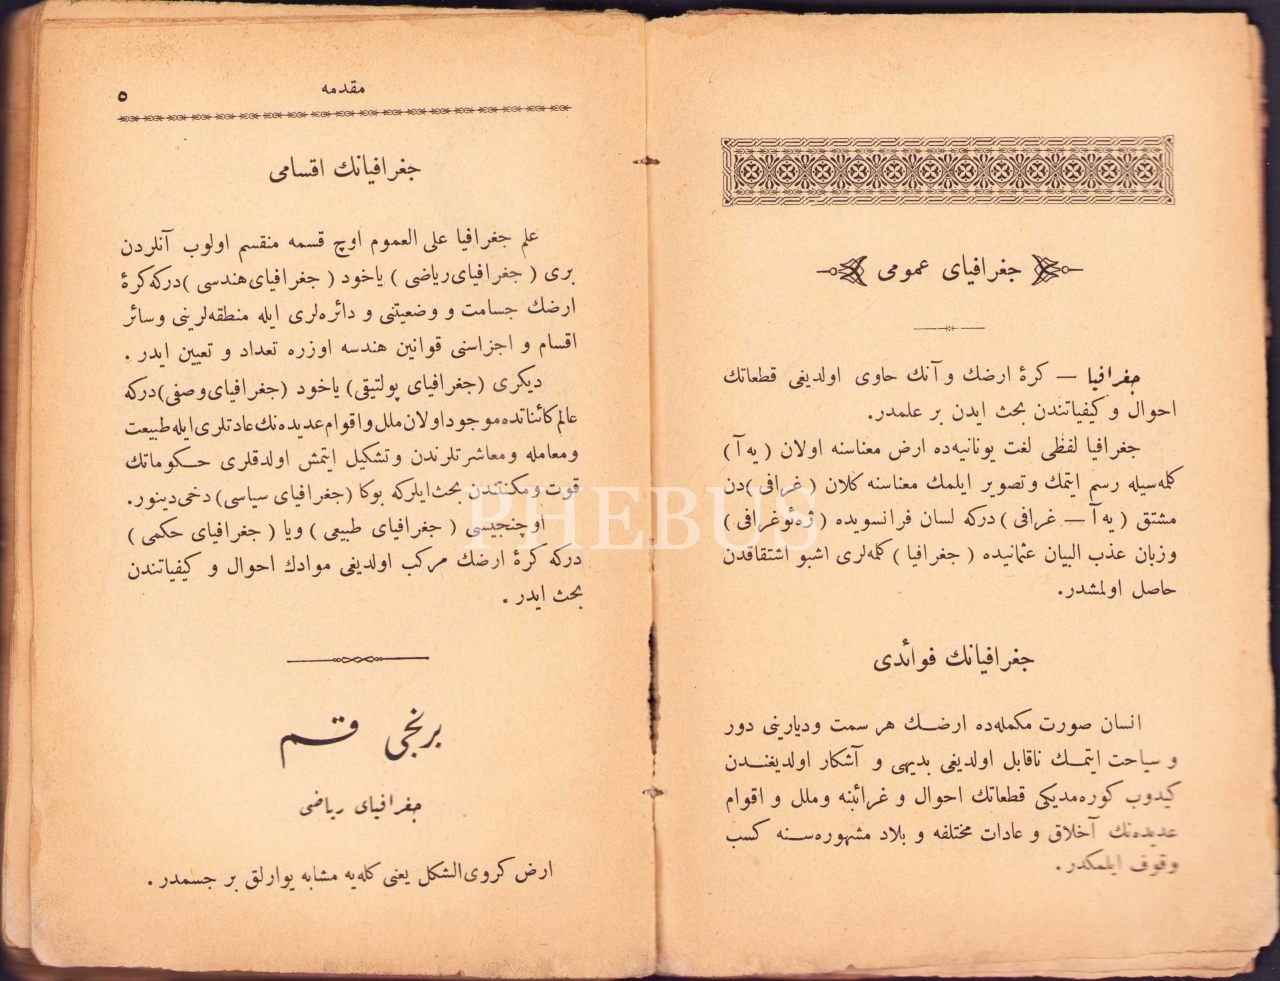 جغرافیای عمومی
جغرافیا — كرهٔ ارضك و آنك حاوی اولدیغی قطعاتك
احوال و كیفیاتندن بحث ایدن بر علمدر.
جغرافیا لفظی لغت یونانیه‌ده ارض معناسنه اولان ( یه آ )
كلمه‌سیله رسم ایتمك و تصویر ایلمك معناسنه كلان ( غرافی ) دن
مشتق ( یه آ — غرافی ) دركه لسان فرانسویده ( ژه‌ئوغرافی )
وزبان عذب البیان عثمانیده ( جغرافیا ) كلمه‌لری اشبو اشتقاقدن
حاصل اولمشدر.
جغرافیانك فوائدی
انسان صورت مكمله‌ده ارضك هر سمت ودیارینی دور
و سیاحت ایتمك ناقابل اولدیغی بدیهی و آشكار اولدیغندن
كیدوب كوره‌مدیكی قطعاتك احوال و غرائبنه وملل و اقوام
عدیده‌نك آخلاق و عادات مختلفه و بلاد مشهوره‌سنه كسب
وقوف ایلمكدر.
مقدمه
٥
جغرافیانك اقسامی
علم جغرافیا علی العموم اوچ قسمه منقسم اولوب آنلردن
بری ( جغرافیای ریاضی ) یاخود ( جغرافیای هندسی ) دركه كرهٔ
ارضك جسامت و وضعیتنی و دائره‌لری ایله منطقه‌لرینی وسائر
اقسام و اجزاسنی قوانین هندسه اوزره تعداد و تعیین ایدر .
دیكری (جغرافیای پولتیقی) یاخود (جغرافیای وصفی) دركه
عالم كائناتده موجود اولان ملل واقوام عدیده‌نك عادتلری ایله طبیعت
ومعامله ومعاشرتلرندن وتشكیل ایتمش اولدقلری حكوماتك
قوت ومكنتندن بحث ایلركه بوكا (جغرافیای سیاسی) دخی دینور.
اوچنجیسی ( جغرافیای طبیعی ) ویا ( جغرافیای حكمی )
دركه كرهٔ ارضك مركب اولدیغی موادك احوال و كیفیاتندن
بحث ایدر .
برنجی قسم
جغرافیای ریاضی
ارض كروی‌الشكل یعنی كله‌یه مشابه یوارلق بر جسمدر .
PHEBUS